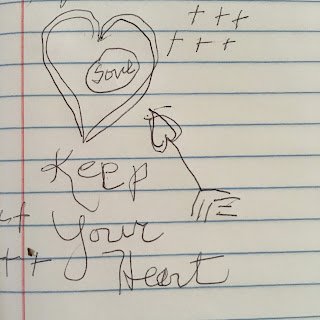 Soul
Keep
Your
Heart